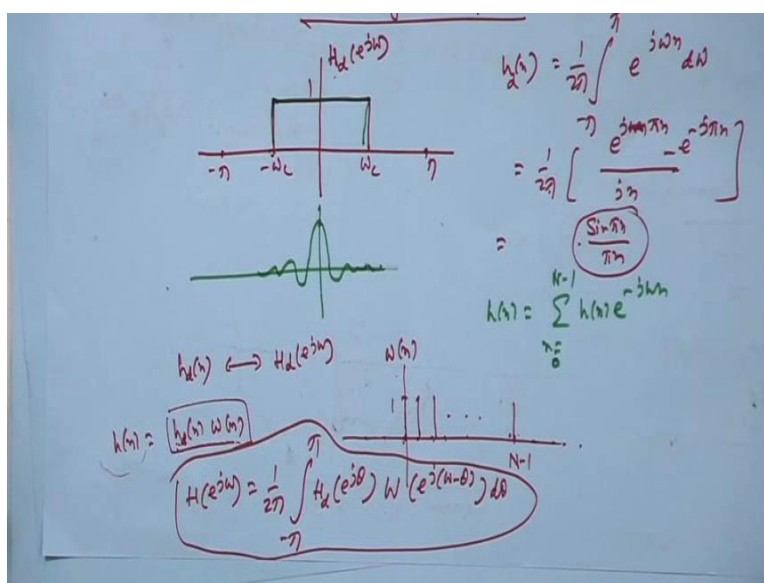 H_d(e^{jω})
1
-π -ω_c ω_c π
h_d(n) = 1/2π ∫_{-π}^{π} e^{jωn} dω
= 1/2π [ (e^{jπn} - e^{-jπn}) / jn ]
= sin πn / πn
h(n) = Σ_{n=0}^{N-1} h(n) e^{-jωn}
h_d(n) ⟷ H_d(e^{jω})
ω(n)
1 . . . .
N-1
h(n) = h_d(n) ω(n)
H(e^{jω}) = 1/2π ∫_{-π}^{π} H_d(e^{jθ}) W(e^{j(ω-θ)}) dθ